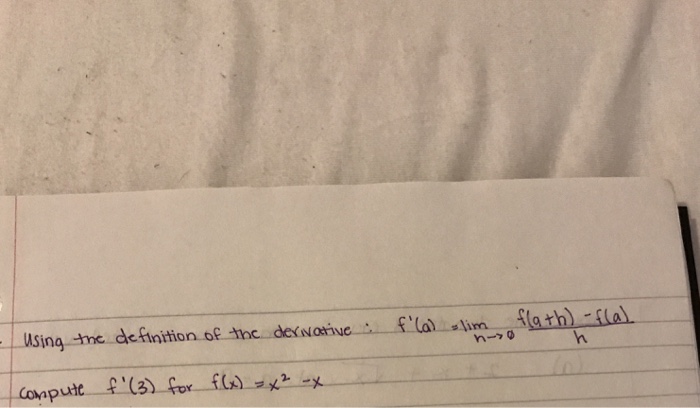 Using the definition of the derivative : f'(a) = lim h→0 f(a+h) - f(a) / h
compute f'(3) for f(x) = x² - x